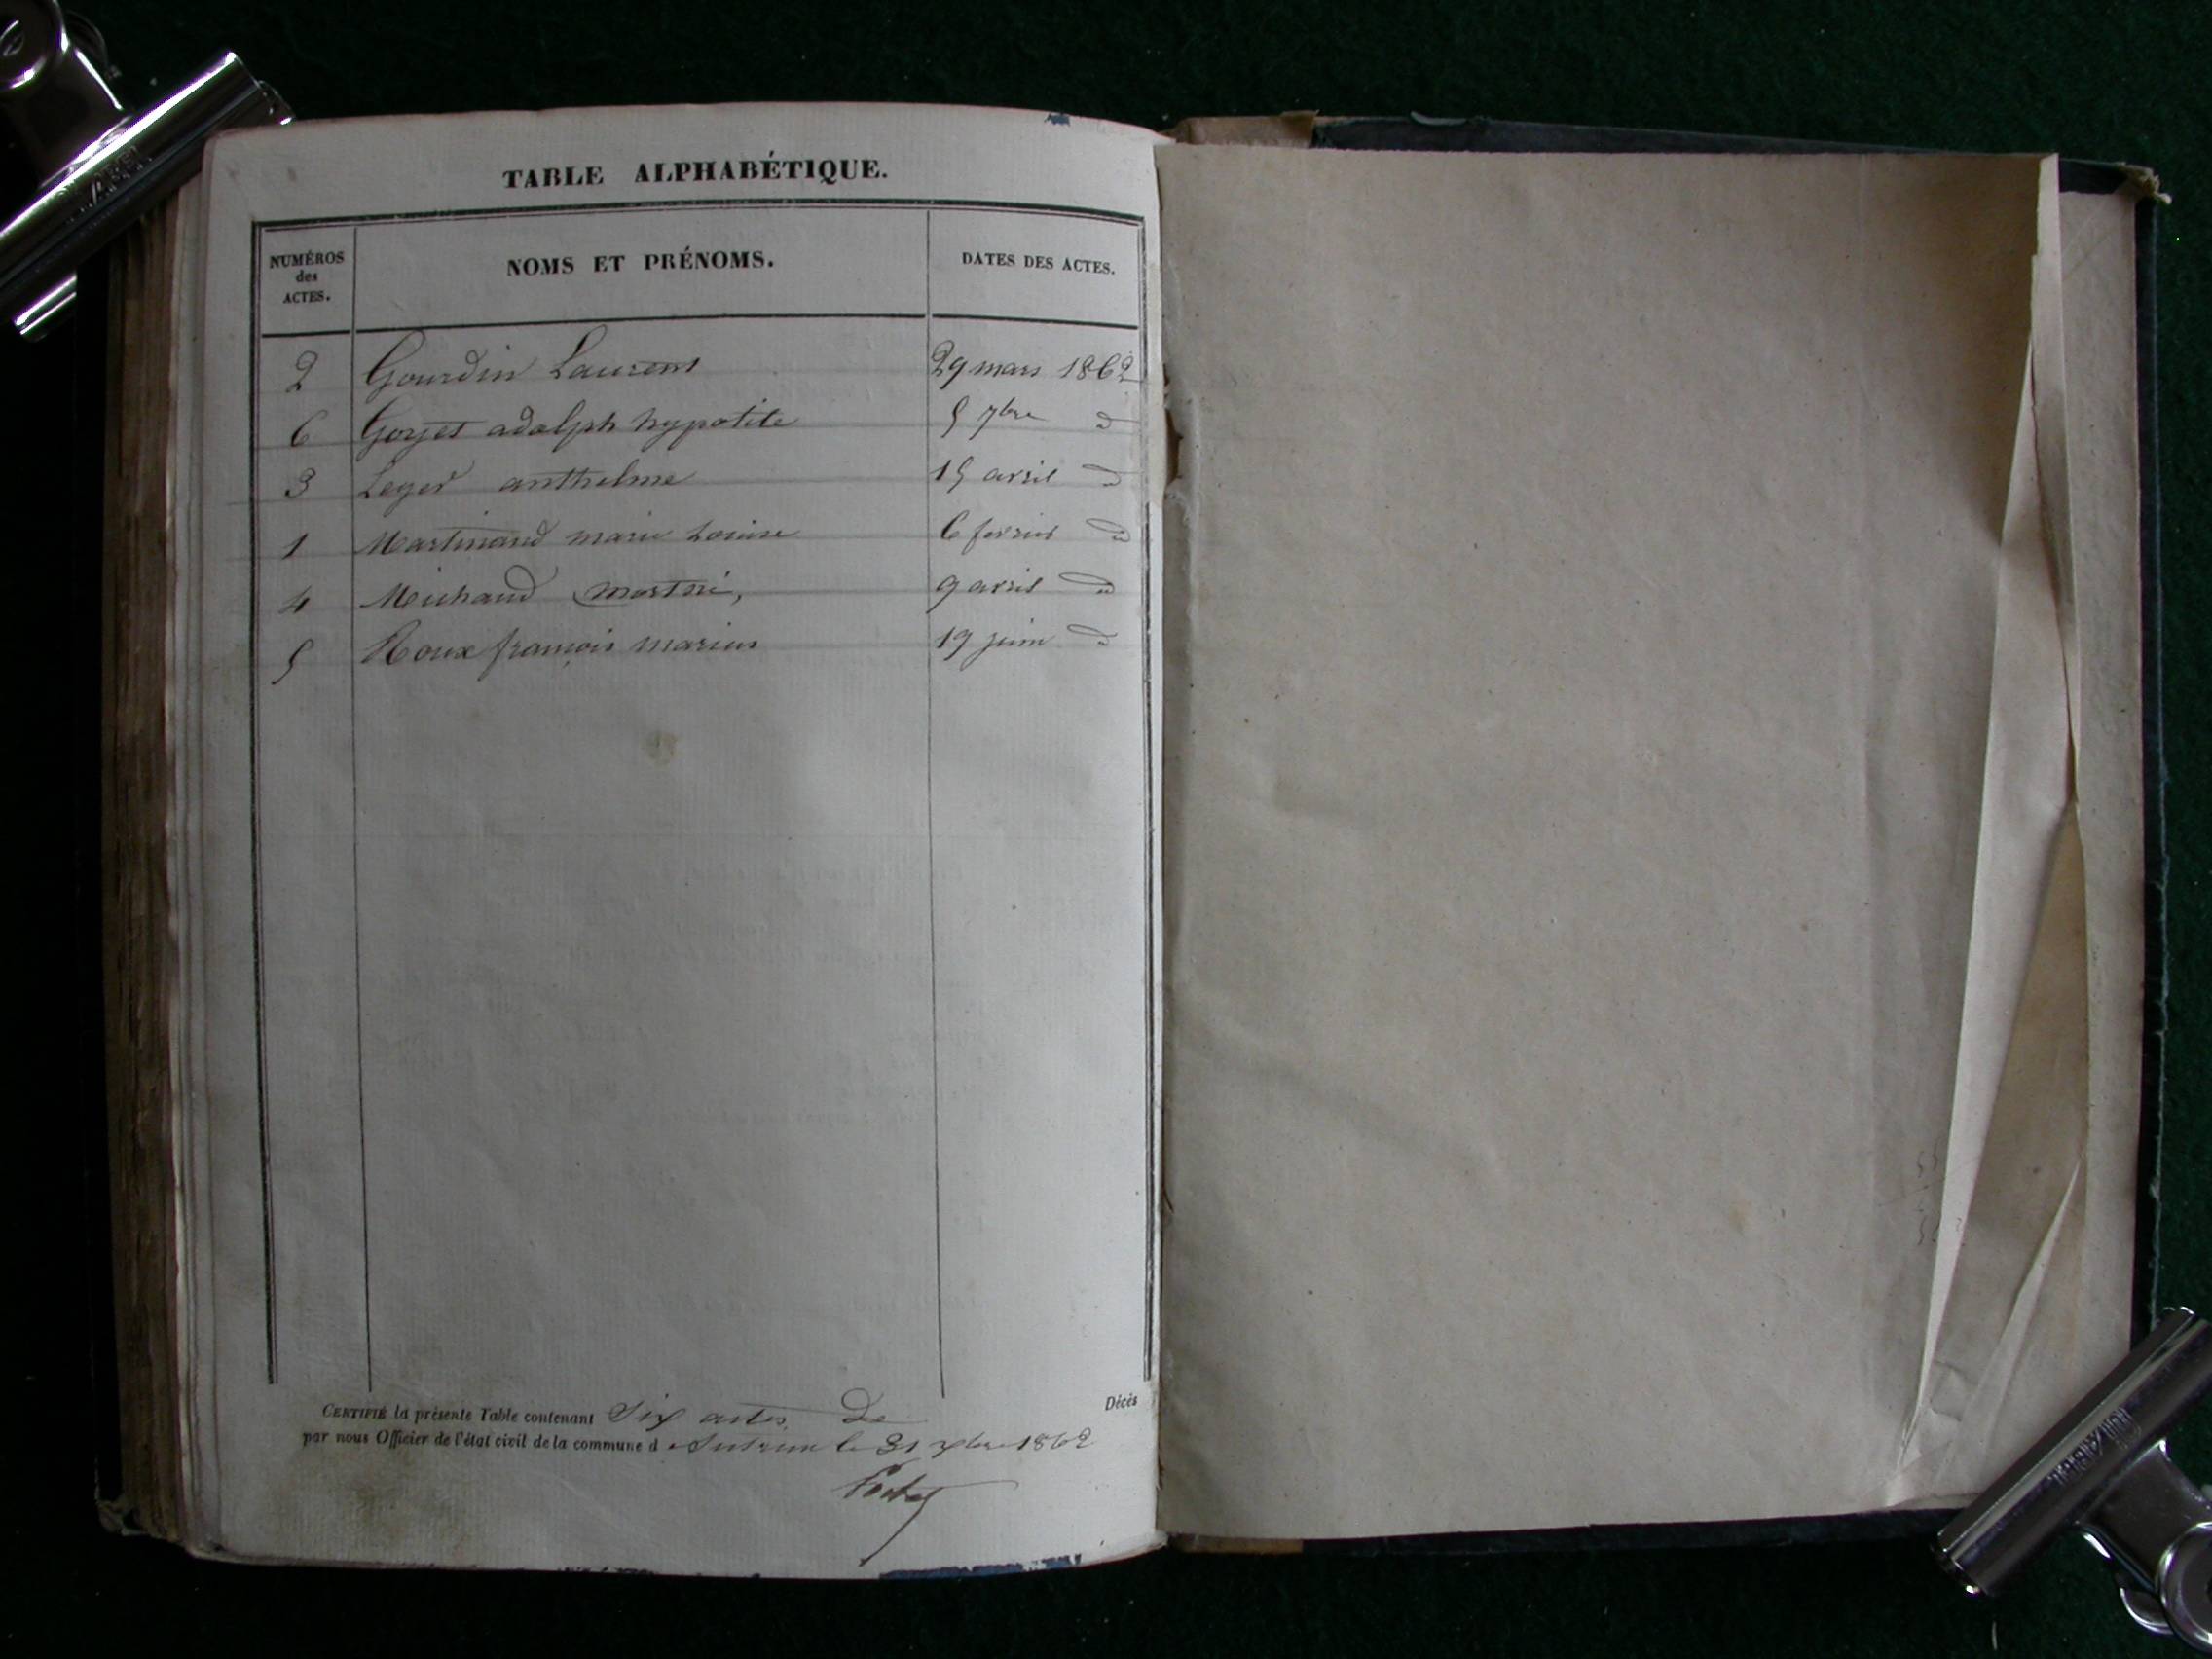 TABLE ALPHABÉTIQUE.
NUMÉROS des ACTES. NOMS ET PRÉNOMS. DATES DES ACTES.
2 Gourdin Laurent 29 mars 1862
6 Goyet adolph hypolite 5 7bre d
3 Leger anthelme 15 avril d
1 Martinand marie Louise 6 fevrier d
4 Michaud martin, 9 avril d
5 Roux françois marius 19 juin d
CERTIFIÉ la présente Table contenant Six actes de Décès
par nous Officier de l'état civil de la commune d le 31 xbre 1862